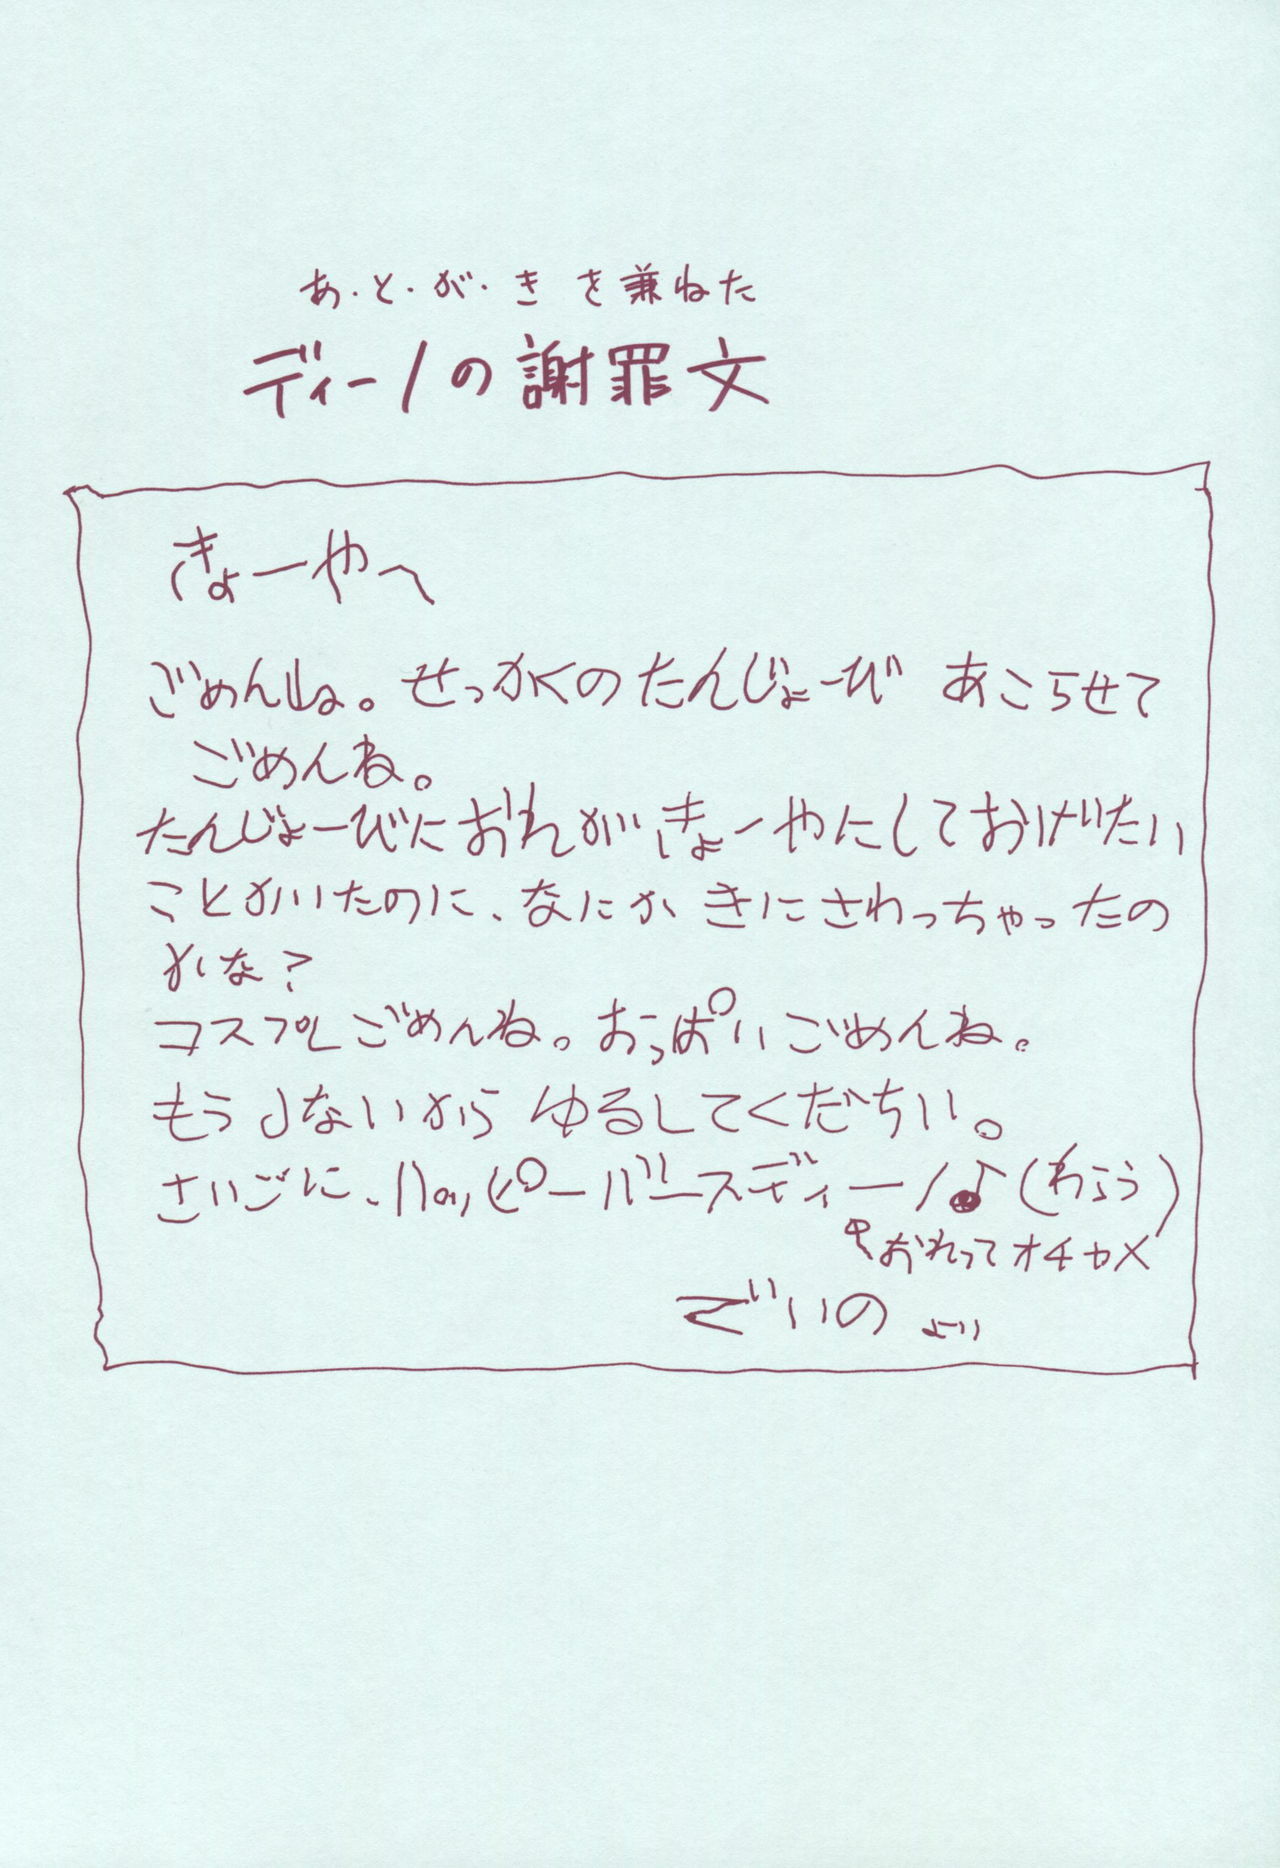 あ・と・が・き を兼ねた
ディーノの謝罪文
きょーやへ
ごめんね。せっかくのたんじょーび あこらせて
ごめんね。
たんじょーびにおれがきょーやにしておげたい
ことかいたのに、なにか きにさわっちゃったの
かな?
コスプレごめんね。おっぱいごめんね。
もうしないから ゆるしてくだちい。
さいごに、ハッピーバースディーノ♪(わらう)
おれってオチャメ
でいの より